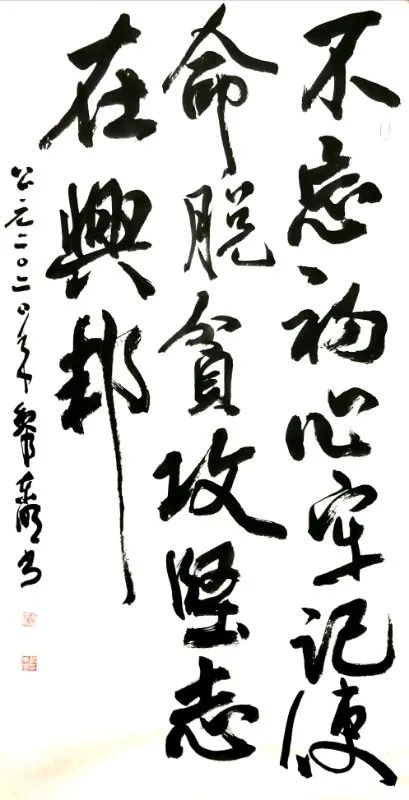 不忘初心牢记使
命脱貧攻堅志
在興邦
公元二〇二〇年